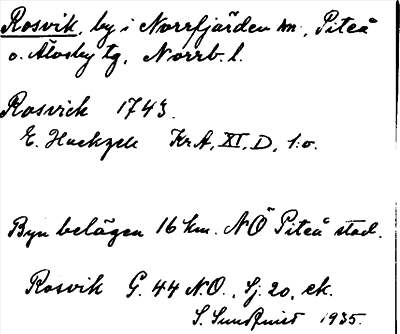 Rosvik, by i Norrfjärden sn., Piteå
o. Älvsby tg, Norrb. l.
Rosvick 1743.
E. Hackzell KrA, XI, D, 1:o.
Byn belägen 16 km. NÖ Piteå stad.
Rosvik G. 44 N.O., Sj. 20, ek.
S. Sundqvist 1935.